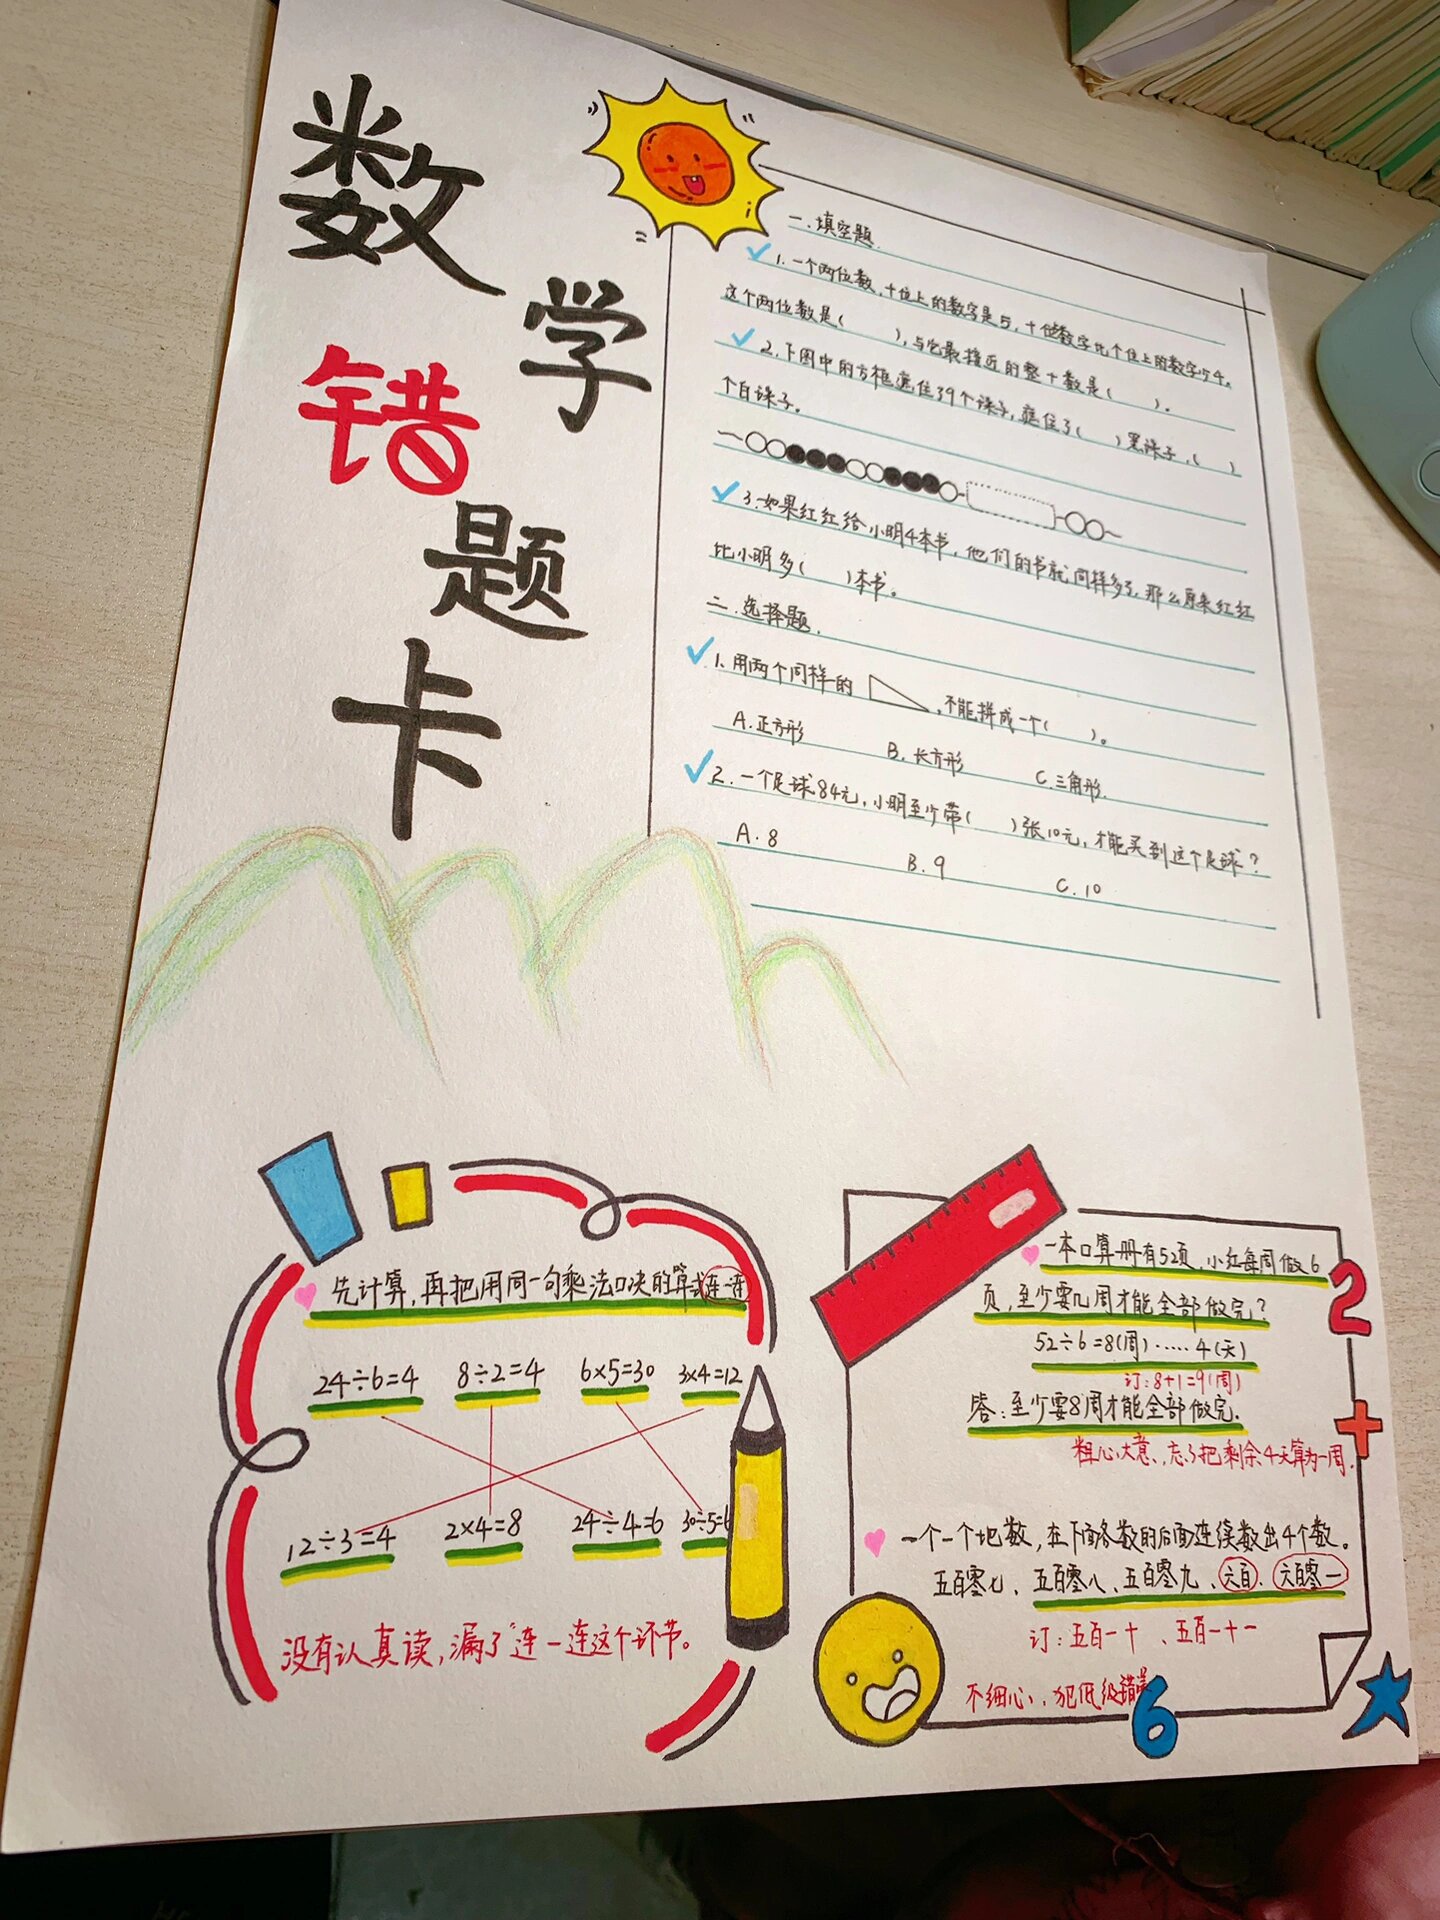 数
学
错
题
卡
一.填空题.
1.一个两位数,十位上的数字是5,十位数字比个位上的数字少4,
这个两位数是(    ),与它最接近的整十数是(    )。
2.下图中的方框遮住了9个珠子,遮住了(    )黑珠子,(    )
个白珠子。
3.如果红红给小明4本书,他们的书就同样多了,那么原来红红
比小明多(    )本书。
二.选择题.
1.用两个同样的,不能拼成一个(    )。
A.正方形 B.长方形 C.三角形.
2.一个足球84元,小明至少带(    )张10元,才能买到这个足球?
A.8 B.9 C.10
先计算,再把用同一句乘法口诀的算式连一连
24÷6=4 8÷2=4 6×5=30 3×4=12
12÷3=4 2×4=8 24÷4=6 30÷5=6
没有认真读,漏了“连一连这个环节。
一本口算册有52页,小红每周做6
页,至少要几周才能全部做完?
52÷6=8(周)……4(天)
订:8+1=9(周)
答:至少要8周才能全部做完.
粗心大意,忘了把剩余4天算为一周.
一个一个地数,在下面各数的后面连续数出4个数。
五百零七、五百零八、五百零九、六百、六百零一
订:五百一十、五百一十一
不细心,犯低级错误
2
+
6